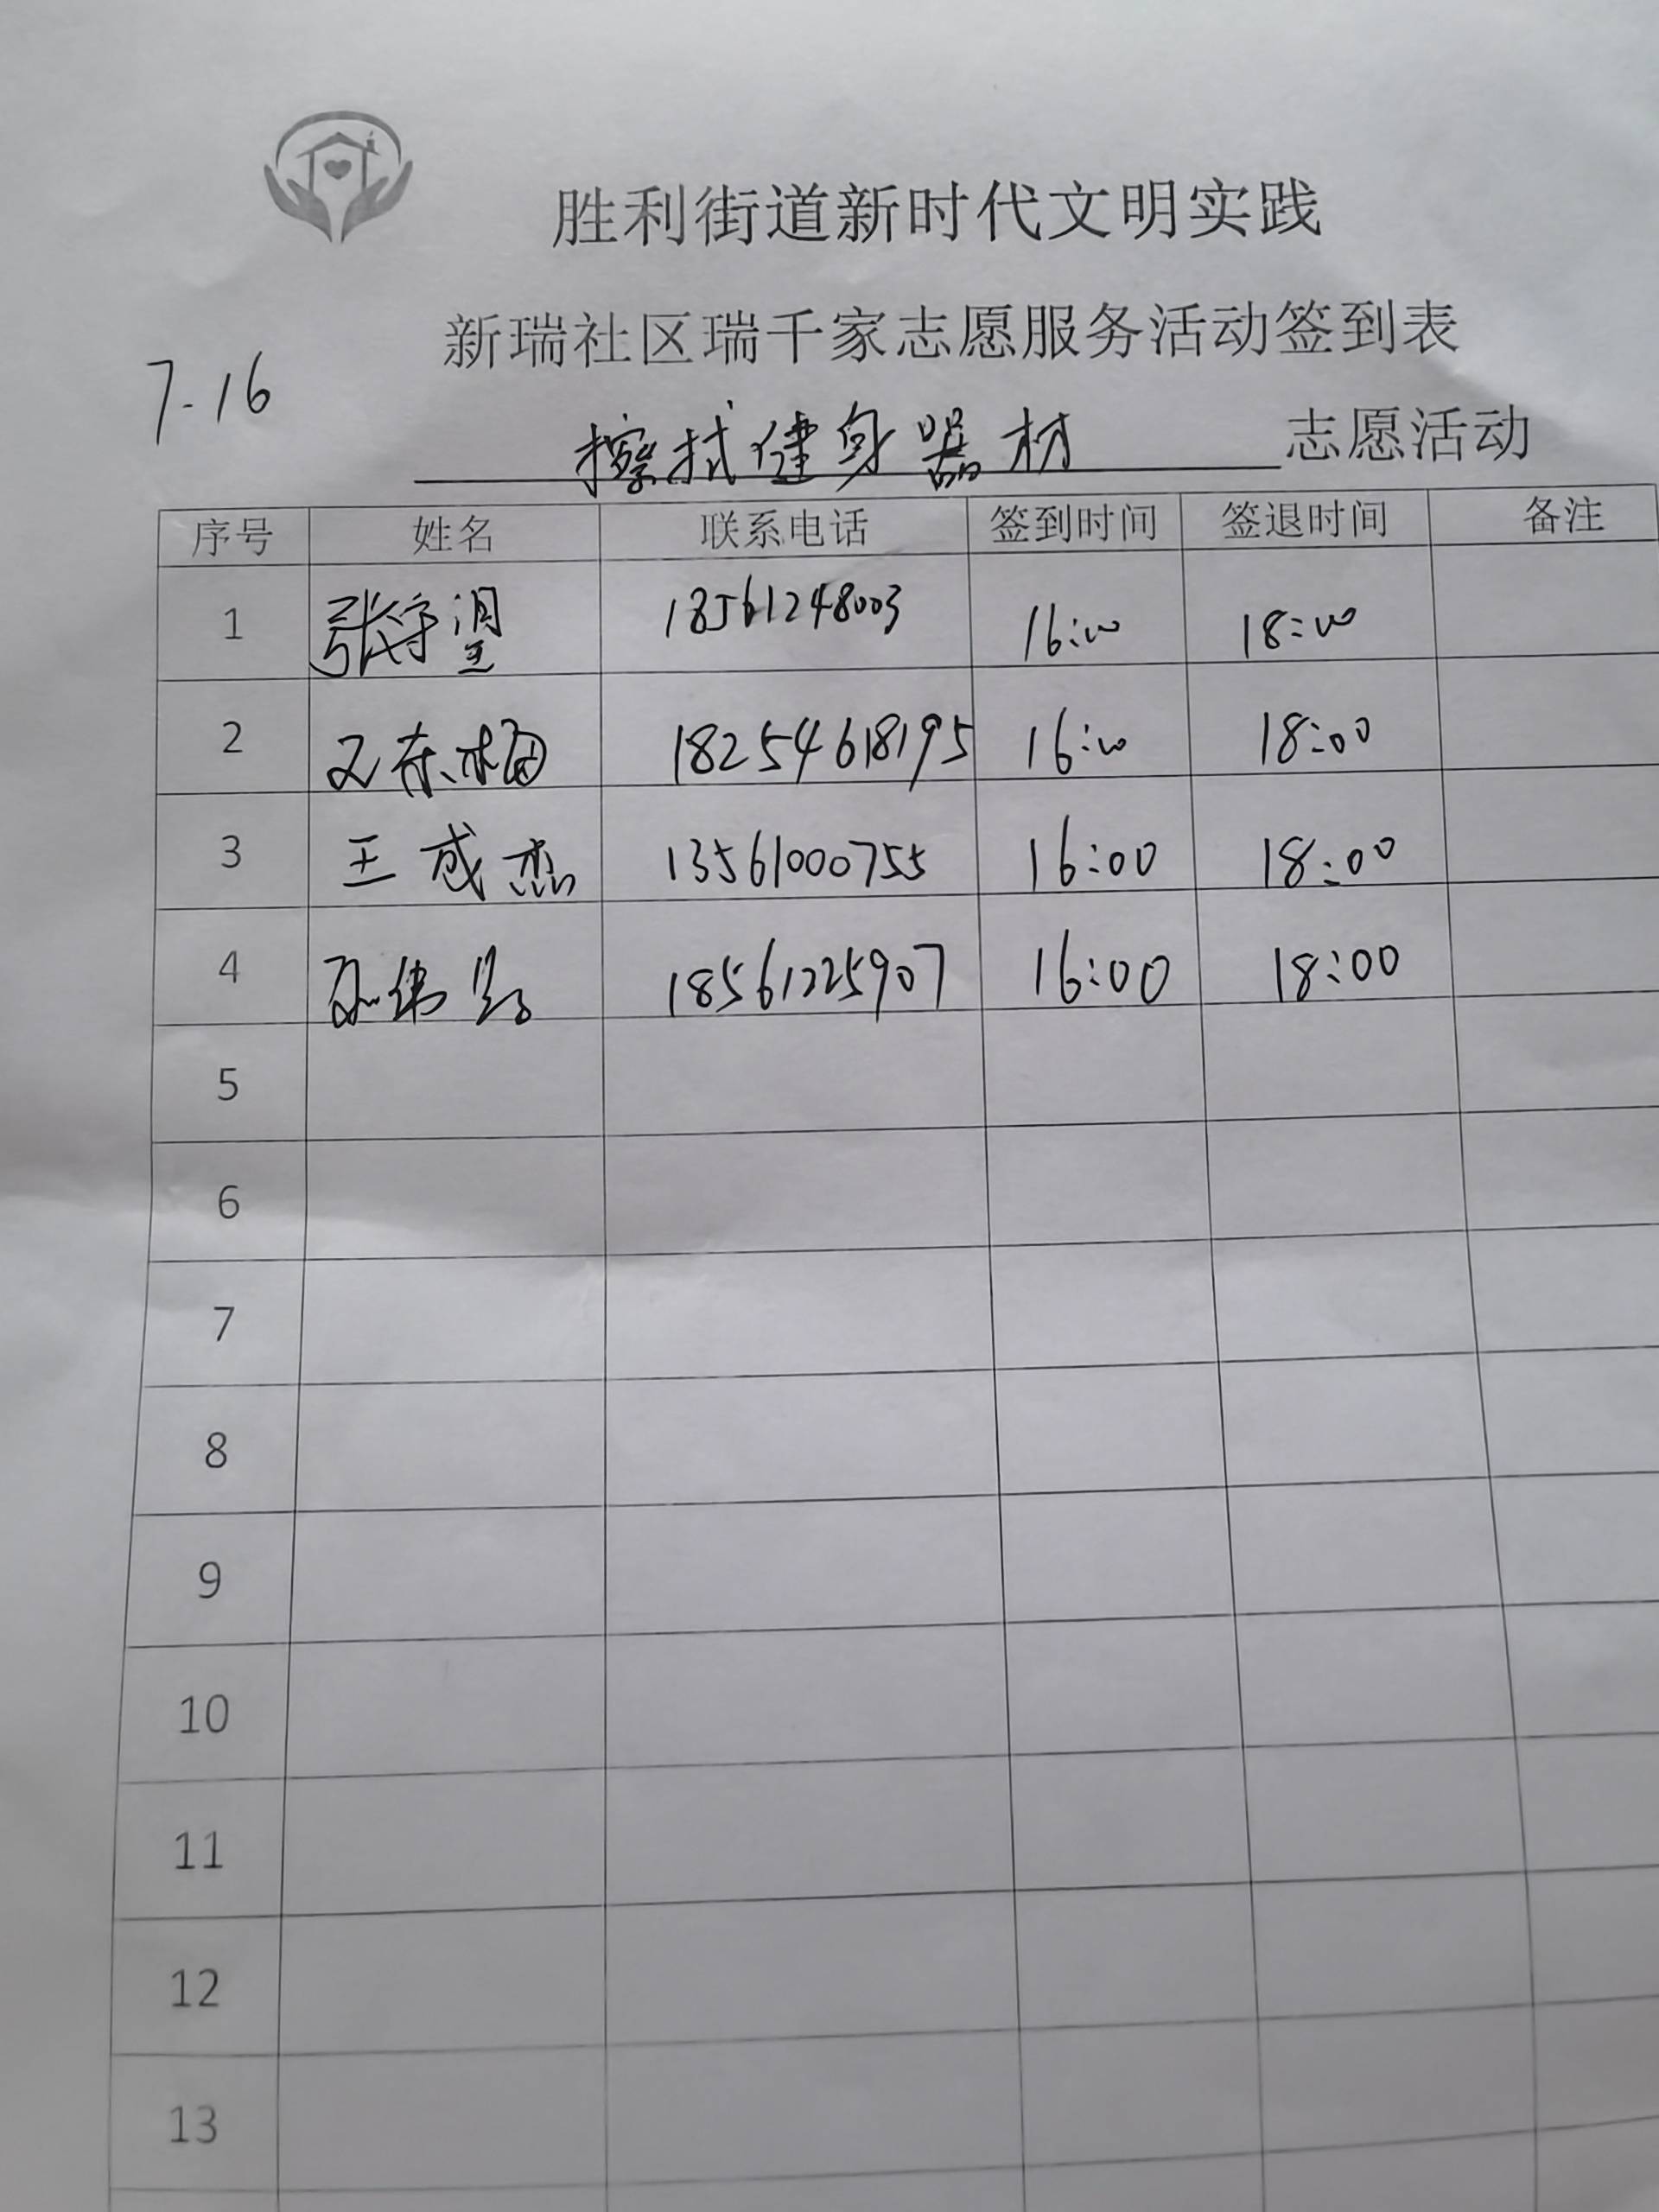 胜利街道新时代文明实践
新瑞社区瑞千家志愿服务活动签到表
7.16
擦拭健身器材 志愿活动
序号 姓名 联系电话 签到时间 签退时间 备注
1 张守 18561248003 16:00 18:00
2 18254618195 16:00 18:00
3 王成杰 13561000755 16:00 18:00
4 孙伟 18561225907 16:00 18:00
5
6
7
8
9
10
11
12
13